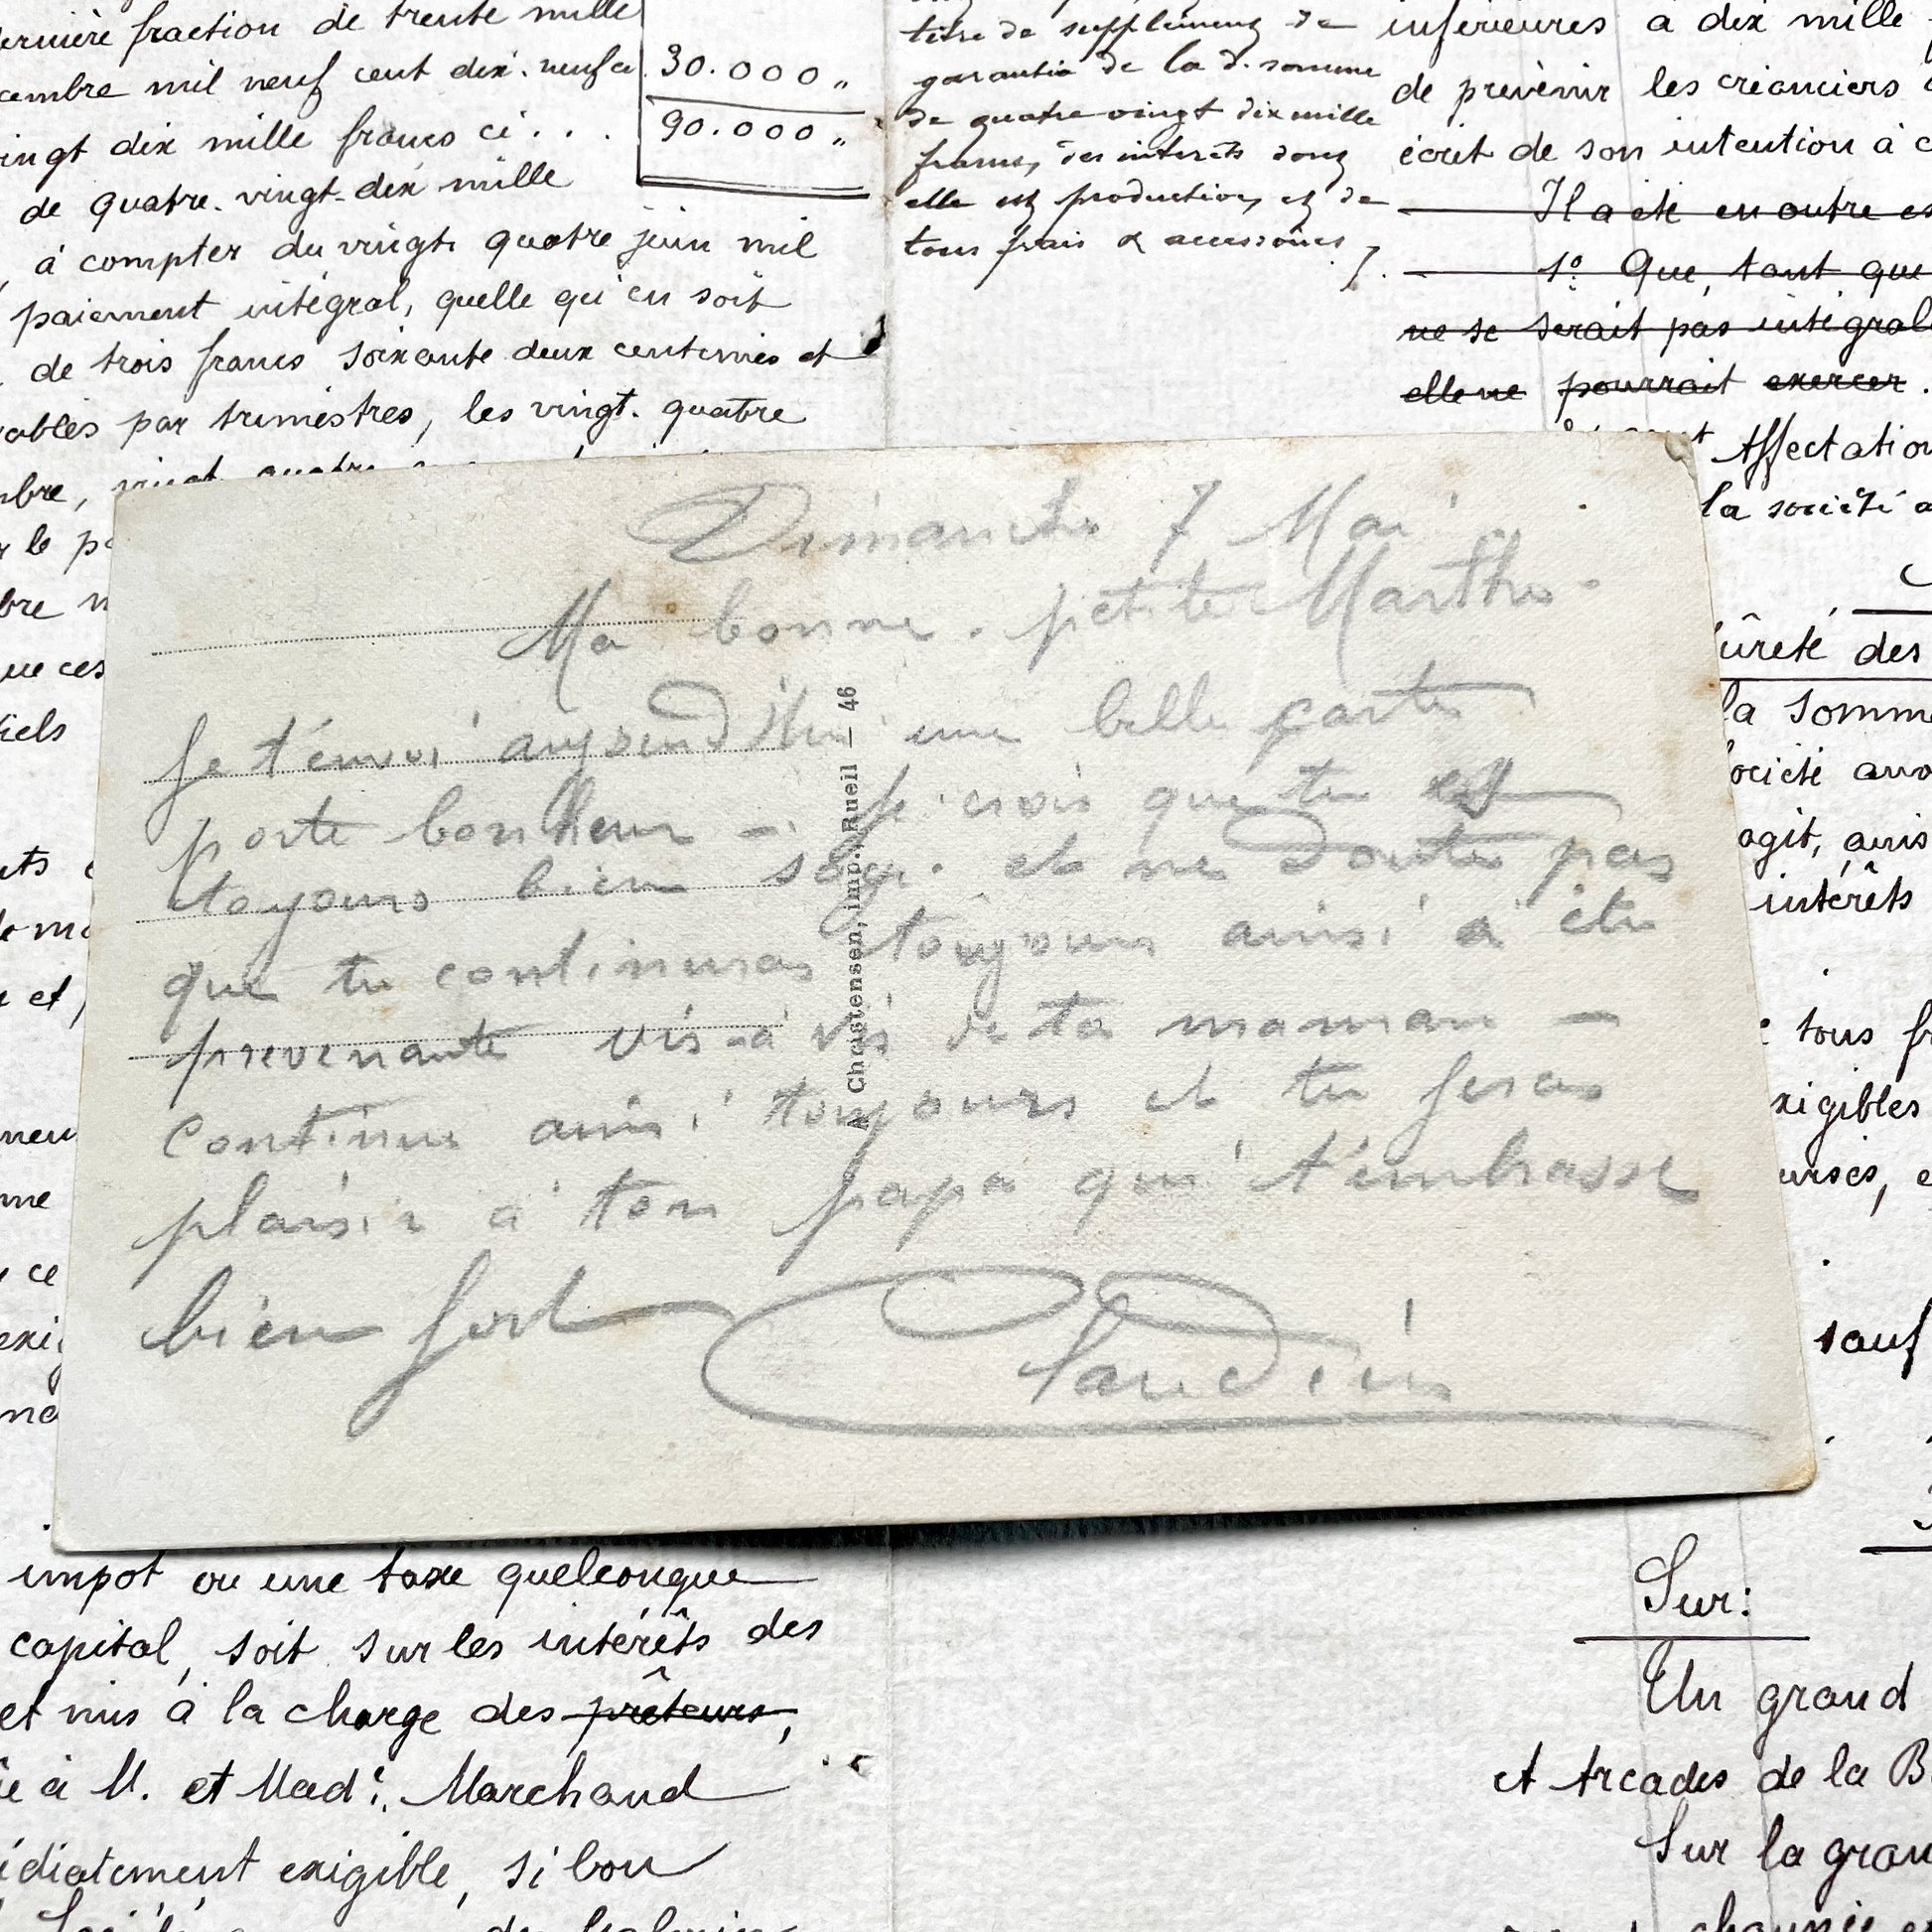 dernière fraction de trente mille
cembre mil neuf cent dix-neuf ci
30.000 "
vingt dix mille francs ci . . .
90.000 "
de quatre-vingt-dix mille
à compter du vingt quatre juin mil
paiement intégral, quelle qu'en soit
de trois francs soixante deux centimes et
ables par trimestres, les vingt-quatre
mbre, vingt quatre
r le p
bre n
ue ces
iels
neu
me
ce
exi
titre de supplément de
garantie de la d. somme
de quatre vingt dix mille
francs, des intérêts dont
elle est production, et de
tous frais & accessoires ./.
inférieures à dix mille
de prévenir les créanciers
écrit de son intention à c
Il a été en outre es
1º Que, tant que
ne se serait pas intégral
elle ne pourrait exercer .
Affectation
la société a
ûreté des
la somme
ociété av
agit, ains
intérêts
tous fr
xigibles
urses, e
sauf
Dimanche 7 Mai
Ma bonne petite Marthe.
Je t'envoi aujourd'hui une belle carte
porte bonheur – Je crois que tu es
toujours bien sage. et ne doute pas
que tu continuras toujours ainsi à être
prevenante vis-à vis de ta maman –
Continue ainsi toujours et tu feras
plaisir à ton papa qui t'embrasse
bien fort
A. Christensen, imp., Rueil — 46
impôt ou une taxe quelconque
capital, soit sur les intérêts des
et mis à la charge des prêteurs,
à M. et Madᵉ. Marchand
édiatement exigible, si bon
Sur:
Un grand
et Arcades de la B
Sur la gran